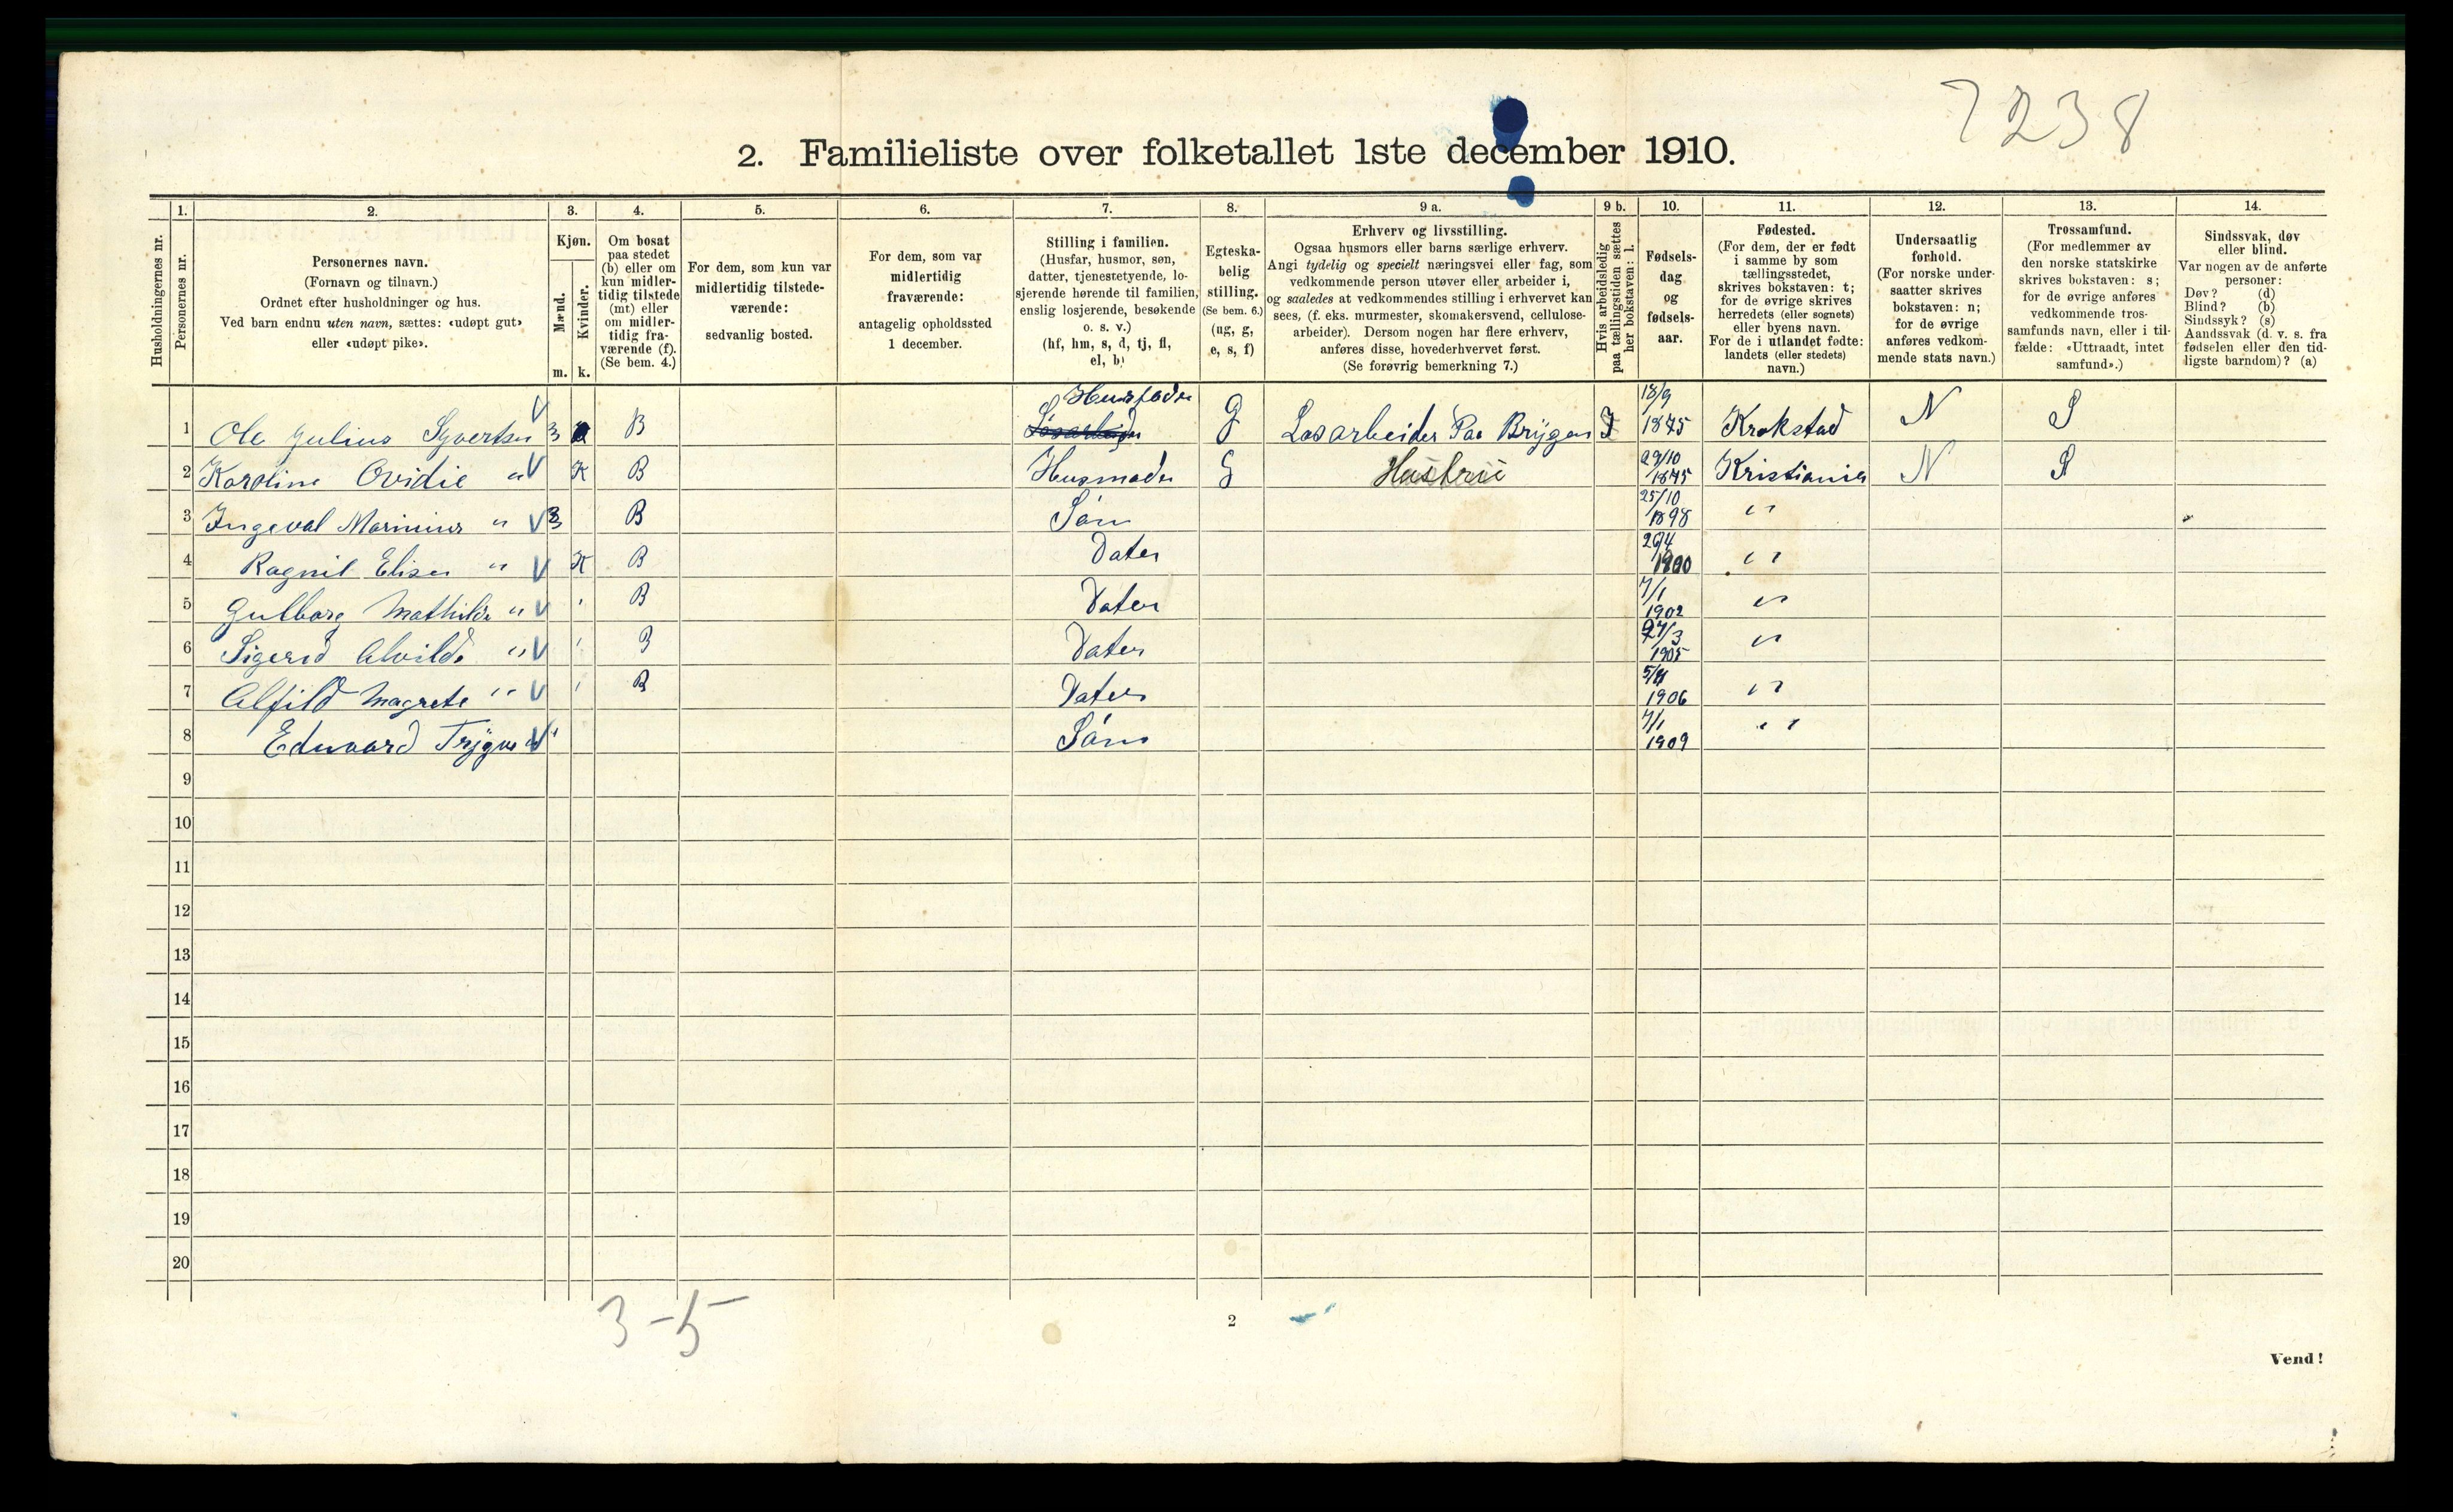 7238
2. Familieliste over folketallet 1ste december 1910.
1. 2. 3. 4. 5. 6. 7. 8. 9 a. 9 b. 10. 11. 12. 13. 14.
Husholdningernes nr.
Personernes nr.
Personernes navn.
(Fornavn og tilnavn.)
Ordnet efter husholdninger og hus.
Ved barn endnu uten navn, sættes: «udøpt gut»
eller «udøpt pike».
Kjøn.
Mænd.
Kvinder.
m. k.
Om bosat
paa stedet
(b) eller om
kun midler-
tidig tilstede
(mt) eller
om midler-
tidig fra-
værende (f).
(Se bem. 4.)
For dem, som kun var
midlertidig tilstede-
værende:
sedvanlig bosted.
For dem, som var
midlertidig
fraværende:
antagelig opholdssted
1 december.
Stilling i familien.
(Husfar, husmor, søn,
datter, tjenestetyende, lo-
sjerende hørende til familien,
enslig losjerende, besøkende
o. s. v.)
(hf, hm, s, d, tj, fl,
el, b)
Egteska-
belig
stilling.
(Se bem. 6.)
(ug, g,
e, s, f)
Erhverv og livsstilling.
Ogsaa husmors eller barns særlige erhverv.
Angi tydelig og specielt næringsvei eller fag, som
vedkommende person utøver eller arbeider i,
og saaledes at vedkommendes stilling i erhvervet kan
sees, (f. eks. murmester, skomakersvend, cellulose-
arbeider). Dersom nogen har flere erhverv,
anføres disse, hovederhvervet først.
(Se forøvrig bemerkning 7.)
Hvis arbeidsledig
paa tællingstiden sættes
her bokstaven: l.
Fødsels-
dag
og
fødsels-
aar.
Fødested.
(For dem, der er født
i samme by som
tællingsstedet,
skrives bokstaven: t;
for de øvrige skrives
herredets (eller sognets)
eller byens navn.
For de i utlandet fødte:
landets (eller stedets)
navn.)
Undersaatlig
forhold.
(For norske under-
saatter skrives
bokstaven: n;
for de øvrige
anføres vedkom-
mende stats navn.)
Trossamfund.
(For medlemmer av
den norske statskirke
skrives bokstaven: s;
for de øvrige anføres
vedkommende tros-
samfunds navn, eller i til-
fælde: «Uttraadt, intet
samfund».)
Sindssvak, døv
eller blind.
Var nogen av de anførte
personer:
Døv? (d)
Blind? (b)
Sindssyk? (s)
Aandssvak (d. v. s. fra
fødselen eller den tid-
ligste barndom)? (a)
1 Ole Julius Syvertsen B Husfader Løsarbeider G Løsarbeider Paa Brygen 18/9 1875 Krokstad N S
2 Karoline Ovidie " K B Husmoder G Hustru 29/10 1875 Kristiania N S
3 Ingeval Marinius " B Søn 25/10 1898 "
4 Ragnil Elise " K B Dater 26/4 1900 "
5 Gulborg Mathilde " B Dater 7/1 1902 "
6 Sigerid Alvilde " B Dater 27/3 1905 "
7 Alfild Magrete " B Dater 1906 "
8 Edvaard Trygve " Søn 7/1 1909 "
9
10
11
12
13
14
15
16
17
18
19
20
3-5
2
Vend!